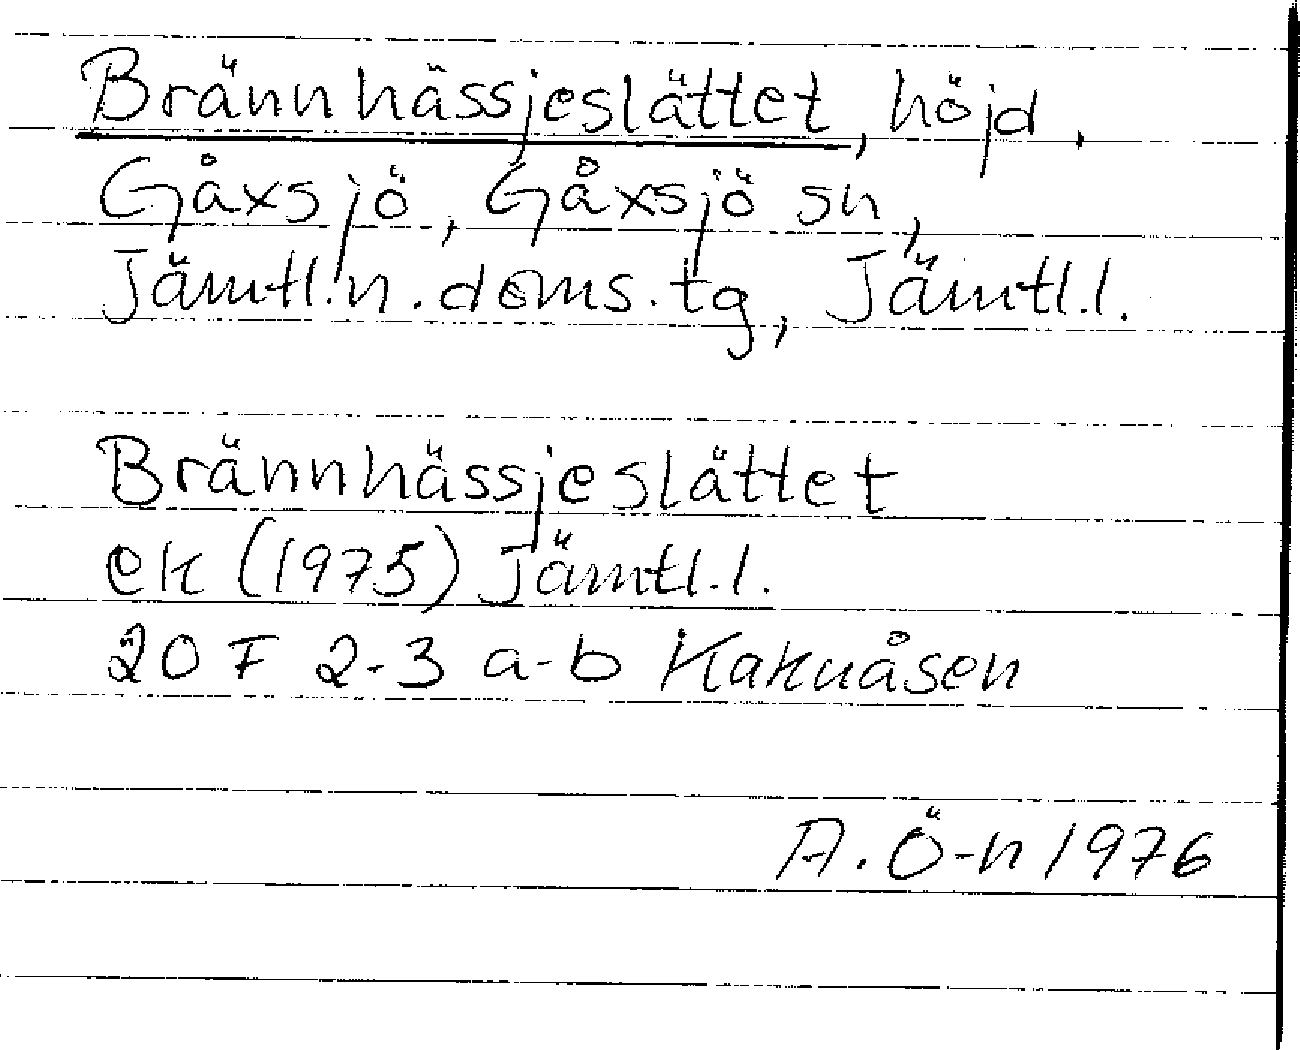 Brännhässjeslättet, höjd,
Gåxsjö, Gåxsjö sn,
Jämtl.n.doms.tg, Jämtl.l.
Brännhässjeslättet
ek (1975) Jämtl.l.
20 F 2-3 a-b Kakuåsen
A.Ö-n 1976